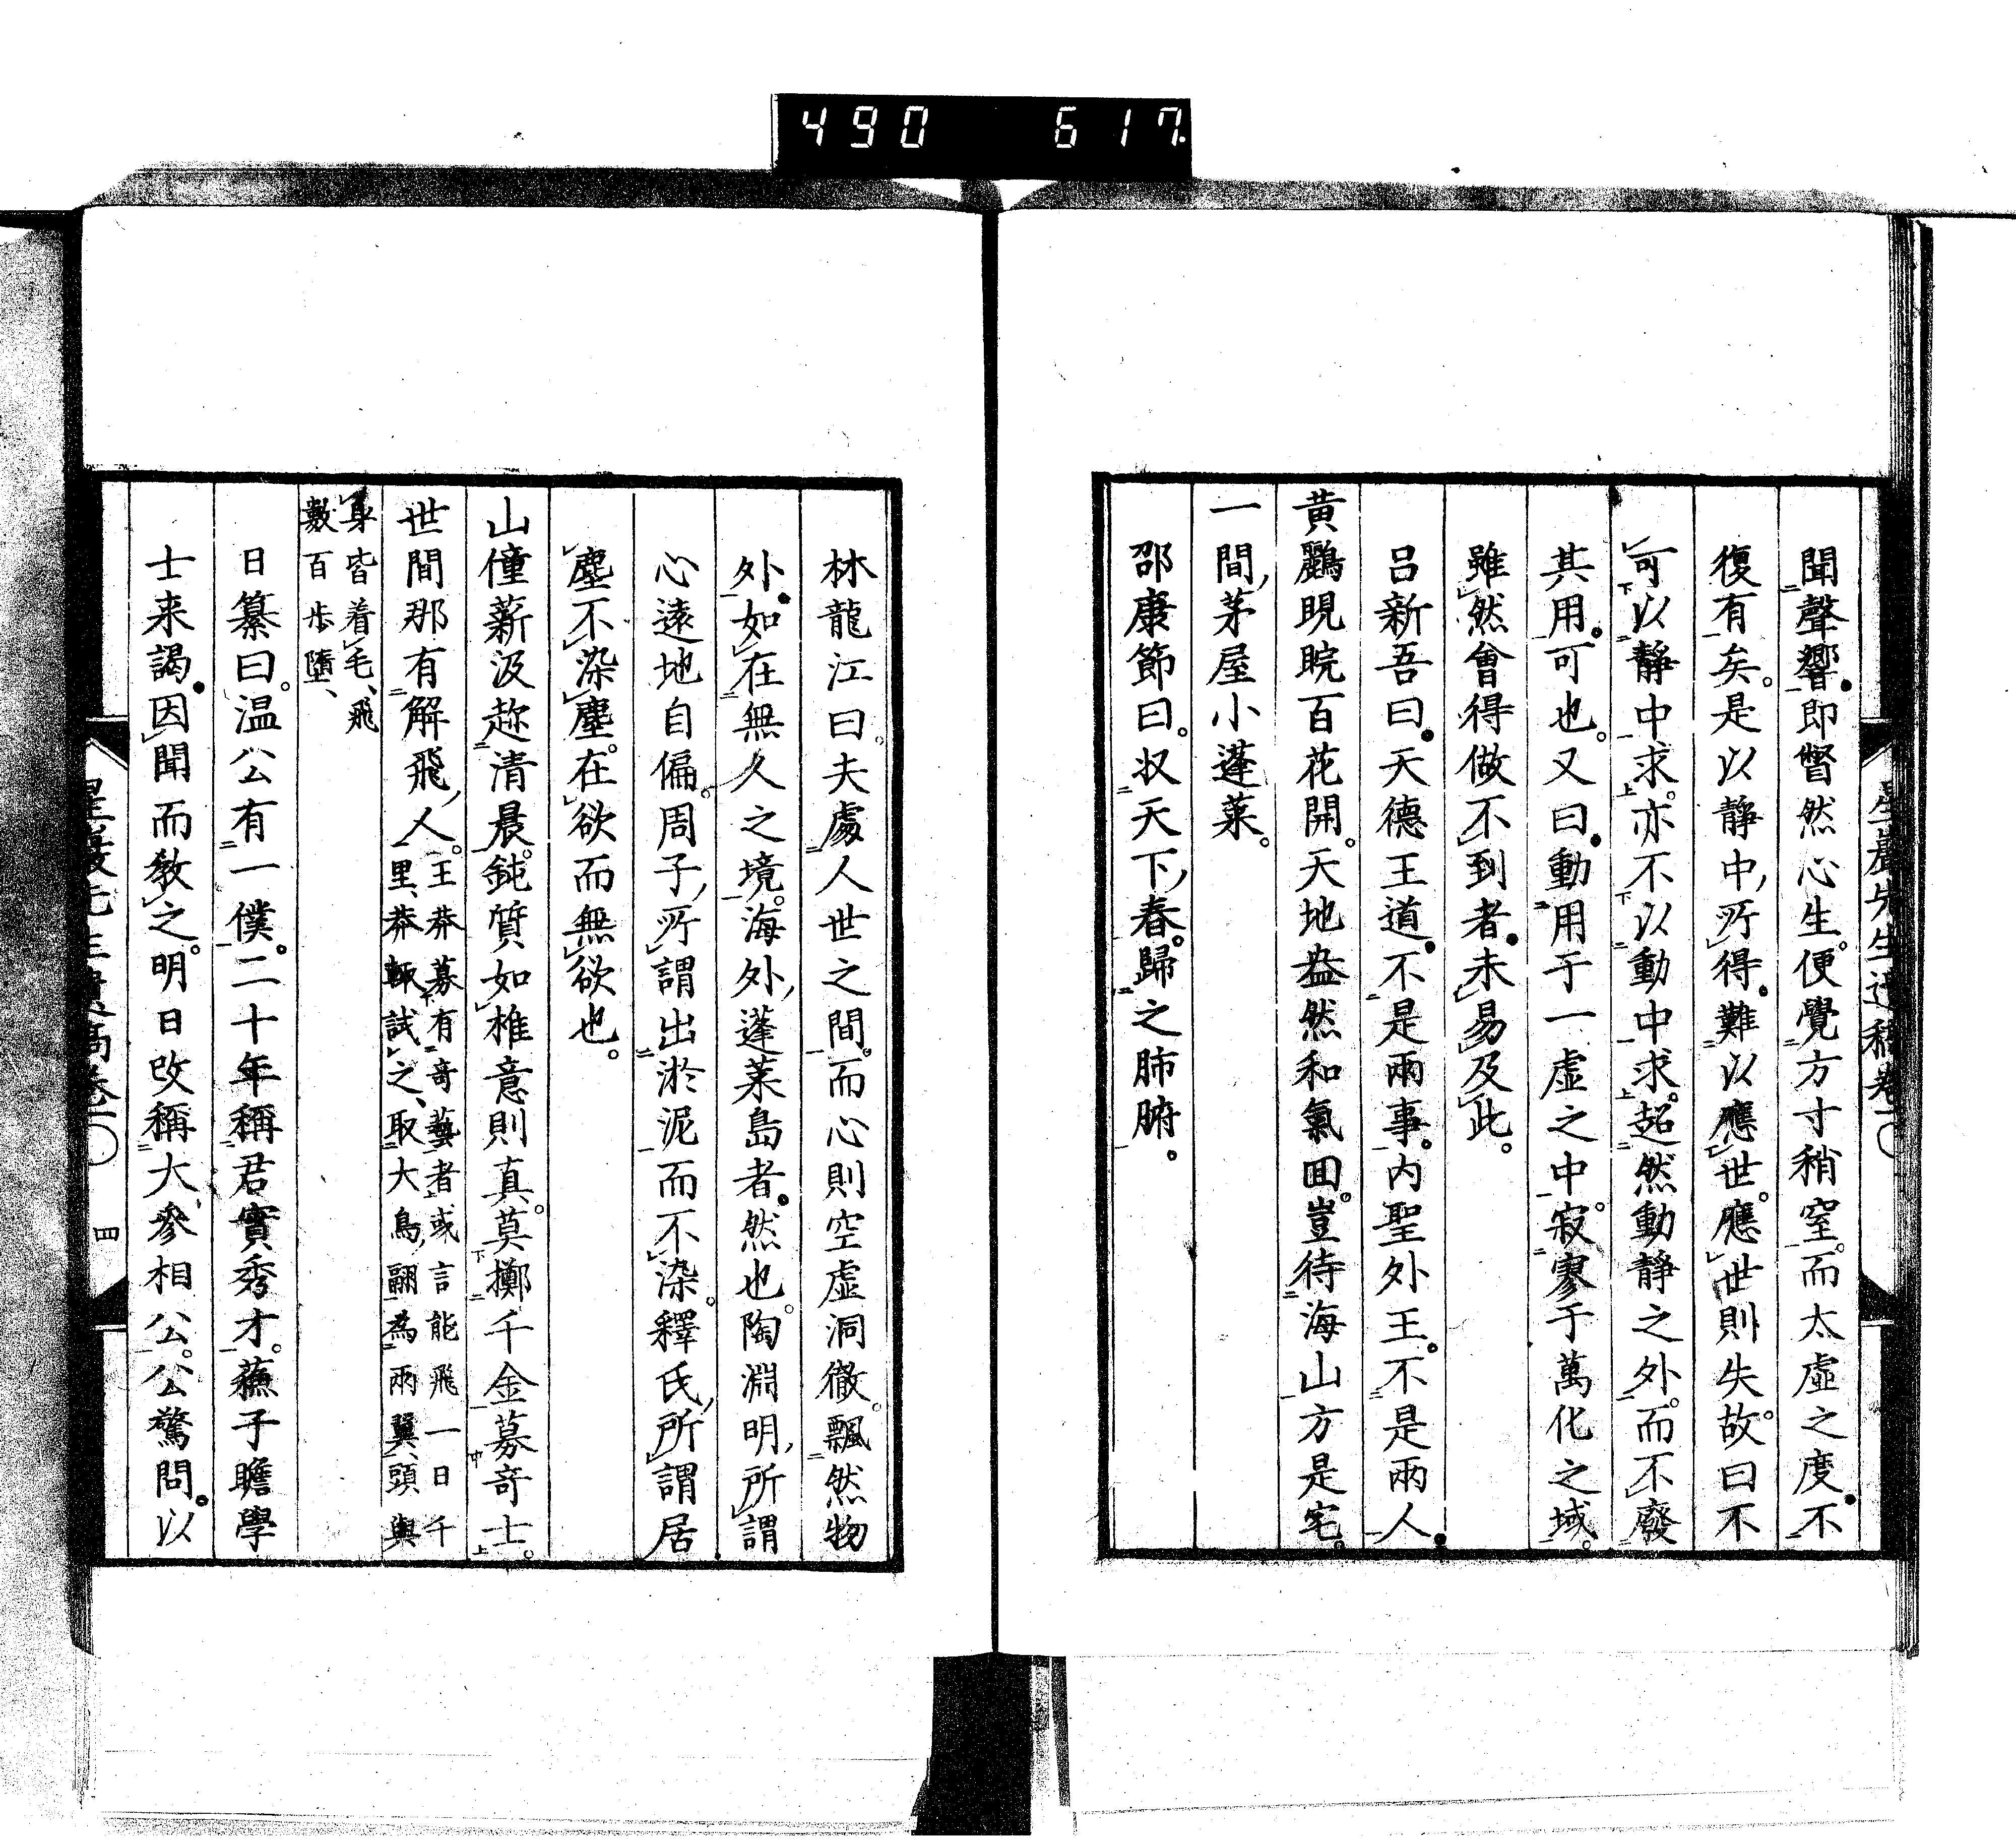 490 617
聞聲響即瞥然心生。便覺方寸稍窒。而太虛之度。不
復有矣。是以靜中所得。難以應世。應世則失故。曰不
可以靜中求。亦不以動中求。超然動靜之外。而不廢
其用。可也。又曰。動用于一虛之中。寂寥于萬化之域。
雖然會得做不到者。未易及此。
呂新吾曰。天德王道。不是兩事。內聖外王。不是兩人。
黃鸝睍睆百花開。天地盎然和氣回。豈待海山方是宅。
一間茅屋小蓬萊。
邵康節曰。收天下春。歸之肺腑。
林龍江曰。夫處人世之間。而心則空虛洞徹。飄然物
外。如在無久之境。海外蓬萊島者。然也。陶淵明所謂
心遠地自偏。周子所謂出淤泥而不染。釋氏所謂居
塵不染塵。在欲而無欲也。
山僮薪汲趂清晨。鈍質如椎意則真。莫擲千金募奇士。
世間那有解飛人。王莽募有奇藝者或言能飛一日千
里、莽輒試之、取大鳥翮為兩翼、頭與
身皆着毛、飛
數百步墮、
日纂曰。温公有一僕。二十年稱君實秀才。蘇子瞻學
士来謁。因聞而教之。明日改稱大參相公。公驚問。以
四